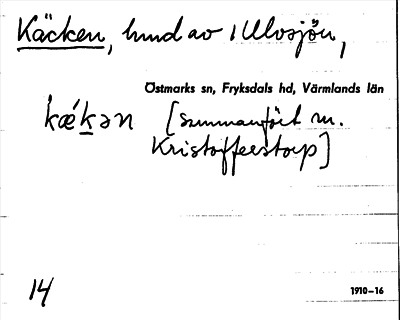 Käcken, hmd av i Ulvsjön,
Östmarks sn, Fryksdals hd, Värmlands län
kǽkən [sammanfört m.
Kristofferstorp]
14
1910-16